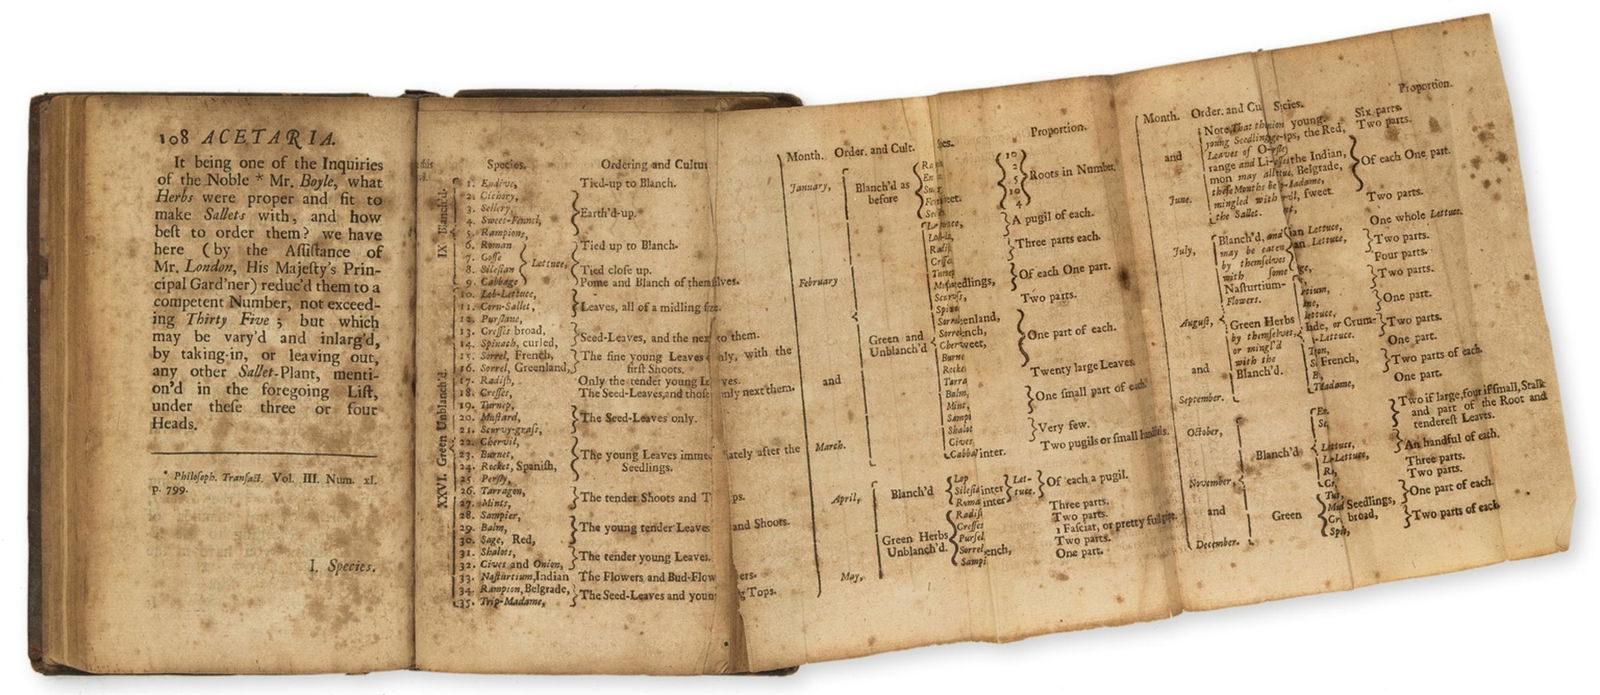 108 ACETARIA.
It being one of the Inquiries
of the Noble * Mr. Boyle, what
Herbs were proper and fit to
make Sallets with, and how
beſt to order them? we have
here (by the Aſſiſtance of
Mr. London, His Majeſty's Prin-
cipal Gard'ner) reduc'd them to a
competent Number, not exceed-
ing Thirty Five; but which
may be vary'd and inlarg'd,
by taking-in, or leaving out,
any other Sallet-Plant, menti-
on'd in the foregoing Liſt,
under theſe three or four
Heads.
* Philoſoph. Tranſact. Vol. III. Num. xl.
p. 799.
I. Species.
Species. Ordering and Cultu
IX Blanch'd
1. Endive, Tied-up to Blanch.
2. Cichory,
3. Sellery, Earth'd-up.
4. Sweet-Fennel,
5. Rampions,
6. Roman Tied up to Blanch.
7. Coſſe Lettuce,
8. Sileſian Tied cloſe up.
9. Cabbage Pome and Blanch of themſelves.
XXVI. Green Unblanch'd.
10. Lob-Lettuce,
11. Corn-Sallet, Leaves, all of a midling ſize.
12. Purſlane,
13. Creſſes broad, Seed-Leaves, and the next to them.
14. Spinach, curled,
15. Sorrel, French, The fine young Leaves only, with the
16. Sorrel, Greenland, firſt Shoots.
17. Radiſh, Only the tender young Leaves.
18. Creſſes, The Seed-Leaves, and thoſe only next them.
19. Turnep,
20. Muſtard, The Seed-Leaves only.
21. Scurvy-graſs,
22. Chervil,
23. Burnet, The young Leaves immediately after the
24. Rocket, Spaniſh, Seedlings.
25. Perſly,
26. Tarragon, The tender Shoots and Tops.
27. Mints,
28. Sampier,
29. Balm, The young tender Leaves and Shoots.
30. Sage, Red,
31. Shalots, The tender young Leaves.
32. Cives and Onion,
33. Naſturtium, Indian The Flowers and Bud-Flowers.
34. Rampion, Belgrade, The Seed-Leaves and young Tops.
35. Trip-Madame,
Month. Order. and Cult. Proportion.
January, Blanch'd as before 10 2 5 10 4 Roots in Number.
February and March.
Green and Unblanch'd
A pugil of each.
Three parts each.
Of each One part.
Two parts.
One part of each.
Twenty large Leaves.
One ſmall part of each
Very few.
Two pugils or ſmall handfuls.
April, Blanch'd Lop Sileſia Roma Let-tuce. Of each a pugil.
Green Herbs Unblanch'd.
Radiſh Three parts.
Creſſes Two parts.
Purſel 1 Faſciat, or pretty full gripe.
Sorrel Two parts.
Sampi One part.
May,
Month. Order. and Cu Proportion.
and June. Note, That
young Seedling
Leaves of Or-
range and Li-
mon may all
theſe Months be
mingled with
the Sallet.
Six parts.
Two parts.
Of each One part.
Two parts.
July, Blanch'd, and
may be eaten
by themſelves
with ſome
Naſturtium-
Flowers.
One whole Lettuce.
Two parts.
Four parts.
Two parts.
Auguſt, and September.
Green Herbs
by themſelves,
or mingl'd
with the
Blanch'd.
One part.
Two parts.
One part.
Two parts of each.
One part.
October, Blanch'd
Two if large, four if ſmall, Stalk
and part of the Root and
tendereſt Leaves.
An handful of each.
Three parts.
Two parts.
November, and December.
Green
Seedlings, One part of each.
broad, Two parts of each